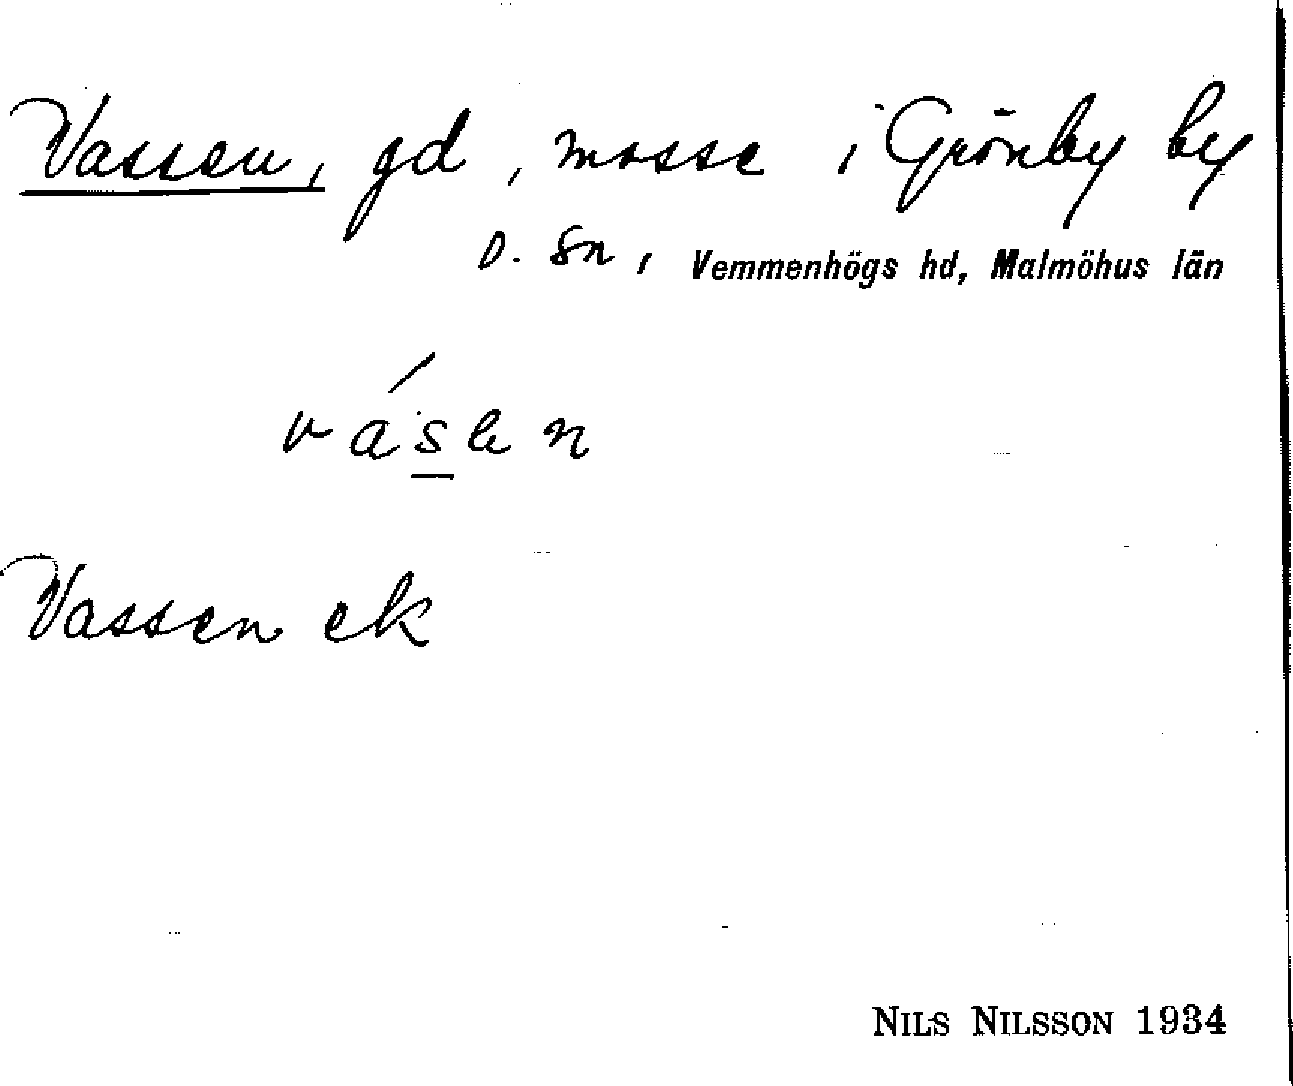 Vassen, gd, mosse i Grönby by
o. sn, Vemmenhögs hd, Malmöhus län
vásen
Vassen ek
NILS NILSSON 1934